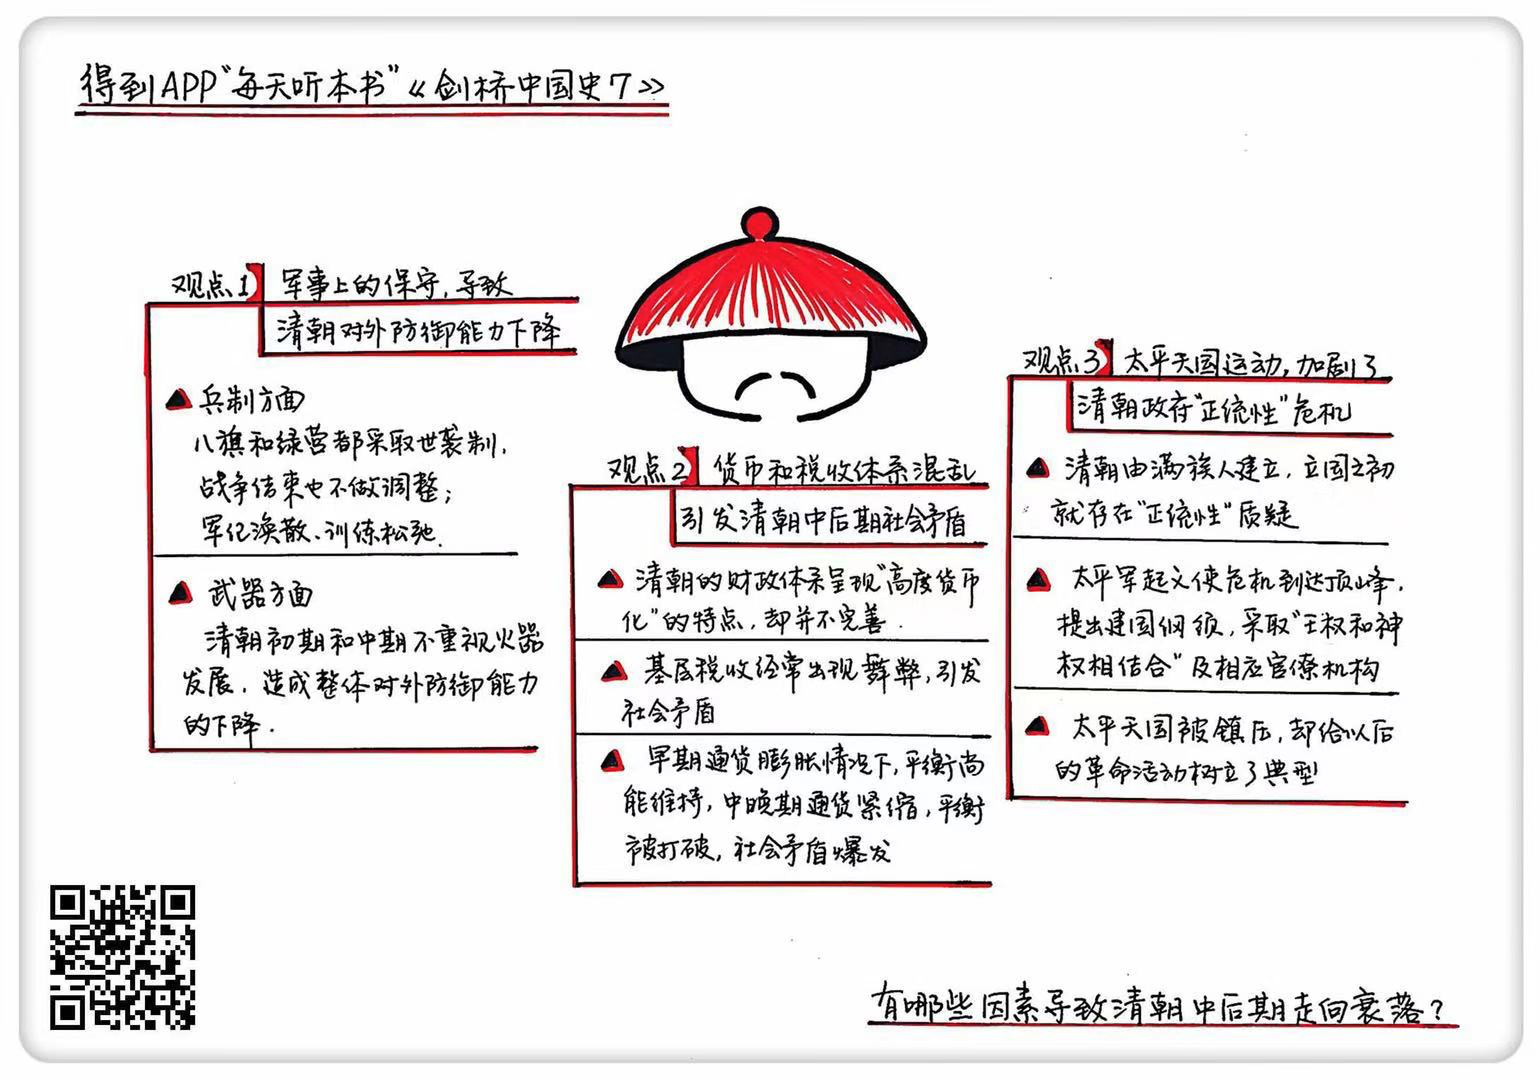 得到APP“每天听本书”《剑桥中国史7》
观点1 军事上的保守,导致
清朝对外防御能力下降
兵制方面
八旗和绿营都采取世袭制,
战争结束也不做调整;
军纪涣散、训练松弛.
武器方面
清朝初期和中期不重视火器
发展,造成整体对外防御能力
的下降.
观点2 货币和税收体系混乱
引发清朝中后期社会矛盾
清朝的财政体系呈现“高度货币
化”的特点,却并不完善.
基层税收经常出现舞弊,引发
社会矛盾
早期通货膨胀情况下,平衡尚
能维持,中晚期通货紧缩,平衡
被打破,社会矛盾爆发
观点3 太平天国运动,加剧了
清朝政府“正统性”危机
清朝由满族人建立,立国之初
就存在“正统性”质疑
太平军起义使危机到达顶峰,
提出建国纲领,采取“王权和神
权相结合”及相应官僚机构
太平天国被镇压,却给以后
的革命活动树立了典型
有哪些因素导致清朝中后期走向衰落?